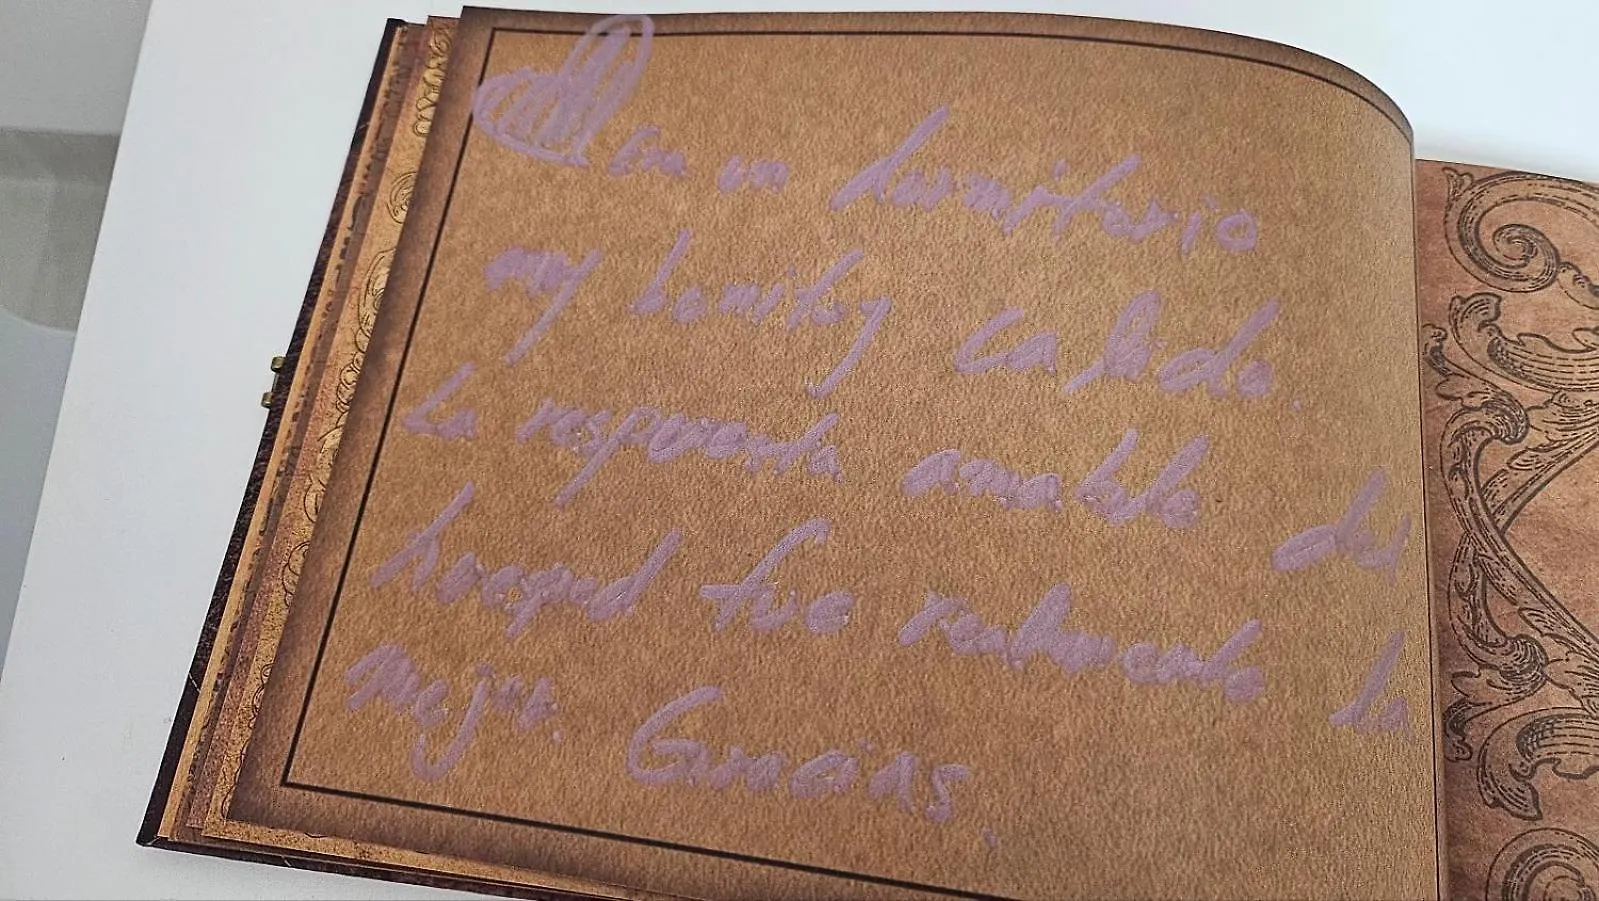 Era un dormitorio
muy bonito y calido.
La respuesta amable del
huesped fue realmente la
mejor. Gracias.